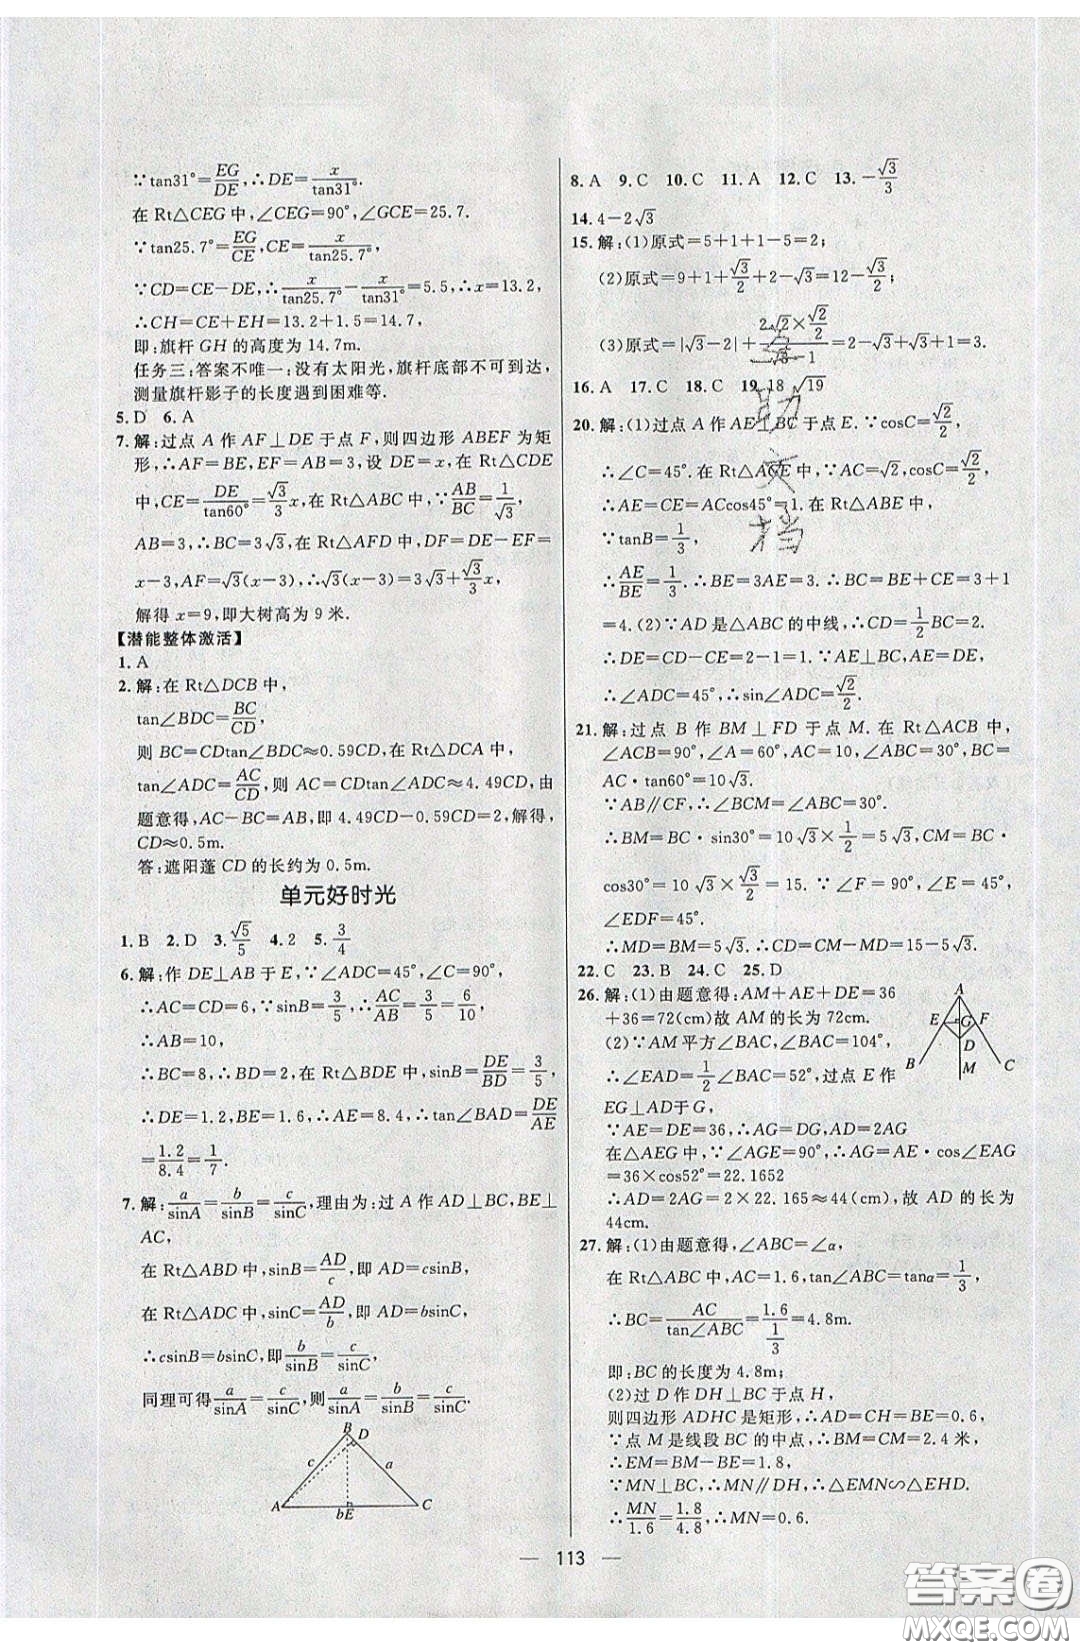 ∵tan31°=EG/DE,∴DE=x/tan31°.
在 Rt△CEG 中,∠CEG=90°,∠GCE=25.7.
∵tan25.7°=EG/CE,CE=x/tan25.7°,
∵CD=CE−DE,∴x/tan25.7°−x/tan31°=5.5,∴x=13.2,
∴CH=CE+EH=13.2+1.5=14.7,
即:旗杆 GH 的高度为 14.7m.
任务三:答案不唯一:没有太阳光,旗杆底部不可到达,
测量旗杆影子的长度遇到困难等.
5. D 6. A
7. 解:过点 A 作 AF⊥DE 于点 F,则四边形 ABEF 为矩
形,∴AF=BE,EF=AB=3,设 DE=x,在 Rt△CDE
中,CE=DE/tan60°=√3/3x,在 Rt△ABC 中,∵AB/BC=1/√3,
AB=3,∴BC=3√3,在 Rt△AFD 中,DF=DE−EF=
x−3,AF=√3(x−3),∴√3(x−3)=3√3+√3/3x,
解得 x=9,即大树高为 9 米.
【潜能整体激活】
1. A
2. 解:在 Rt△DCB 中,
tan∠BDC=BC/CD,
则 BC=CDtan∠BDC≈0.59CD,在 Rt△ADC 中,
tan∠ADC=AC/CD,则 AC=CDtan∠ADC≈4.49CD,由
题意得,AC−BC=AB,即 4.49CD−0.59CD=2,解得,
CD≈0.5m.
答:遮阳蓬 CD 的长约为 0.5m.
单元好时光
1. B 2. D 3. √5/5 4. 2 5. 3/4
6. 解:作 DE⊥AB 于 E,∵∠ADC=45°,∠C=90°,
∴AC=CD=6,∵sinB=3/5,∴AC/AB=3/5=6/10,
∴AB=10,
∴BC=8,∴BD=2,在 Rt△BDE 中,sinB=DE/BD=3/5,
∴DE=1.2,BE=1.6,∴AE=8.4,∴tan∠BAD=DE/AE
=1.2/8.4=1/7.
7. 解:a/sinA=b/sinB=c/sinC,理由为:过 A 作 AD⊥BC,BE⊥
AC,
在 Rt△ABD 中,sinB=AD/c,即 AD=csinB,
在 Rt△ADC 中,sinC=AD/b,即 AD=bsinC,
∴csinB=bsinC,即b/sinB=c/sinC,
同理可得a/sinA=c/sinC,则a/sinA=b/sinB=c/sinC.
B
D
c
a
A
bE
C
8. A 9. C 10. C 11. A 12. C 13. −√3/3
14. 4−2√3
15. 解:(1)原式=5+1+1−5=2;
(2)原式=9+1+√3/2+2−√3=12−√3/2;
(3)原式=|√3−2|+2√2×√2/2/√3−1=2−√3+√3+1=3.
16. A 17. C 18. C 19. 18 √19
20. 解:(1)过点 A 作 AE⊥BC 于点 E.∵cosC=√2/2,
∴∠C=45°.在 Rt△ACE 中,∵AC=√2,cosC=√2/2,
∴AE=CE=ACcos45°=1.在 Rt△ABE 中,
∵tanB=1/3,
∴AE/BE=1/3.∴BE=3AE=3.∴BC=BE+CE=3+1
=4.(2)∵AD 是△ABC 的中线,∴CD=1/2BC=2.
∴DE=CD−CE=2−1=1.∵AE⊥BC,AE=DE,
∴∠ADC=45°,∴sin∠ADC=√2/2.
21. 解:过点 B 作 BM⊥FD 于点 M.在 Rt△ACB 中,
∠ACB=90°,∠A=60°,AC=10,∴∠ABC=30°,BC=
AC·tan60°=10√3.
∵AB∥CF,∴∠BCM=∠ABC=30°.
∴BM=BC·sin30°=10√3×1/2=5√3,CM=BC·
cos30°=10√3×√3/2=15.∵∠F=90°,∠E=45°,∴
∠EDF=45°.
∴MD=BM=5√3.∴CD=CM−MD=15−5√3.
22. C 23. B 24. C 25. D
26. 解:(1)由题意得:AM=AE+DE=36
+36=72(cm)故 AM 的长为 72cm.
(2)∵AM 平方∠BAC,∠BAC=104°,
∴∠EAD=1/2∠BAC=52°,过点 E 作
EG⊥AD于 G,
∵AE=DE=36,∴AG=DG,AD=2AG
在△AEG 中,∵∠AGE=90°,∴AG=AE·cos∠EAG
=36×cos52°=22.1652
∴AD=2AG=2×22.165≈44(cm),故 AD 的长为
44cm.
A
E
G
F
D
B
M
C
27. 解:(1)由题意得,∠ABC=∠α,
在 Rt△ABC 中,AC=1.6,tan∠ABC=tanα=1/3,
∴BC=AC/tan∠ABC=1.6/1/3=4.8m.
即:BC 的长度为 4.8m;
(2)过 D 作 DH⊥BC 于点 H,
则四边形 ADHC 是矩形,∴AD=CH=BE=0.6,
∵点 M 是线段 BC 的中点,∴BM=CM=2.4 米,
∴EM=BM−BE=1.8,
∵MN⊥BC,∴MN∥DH,∴△EMN∽△EHD.
∴MN/1.6=1.8/4.8,∴MN=0.6.
— 113 —
答案圈
MXQE.COM